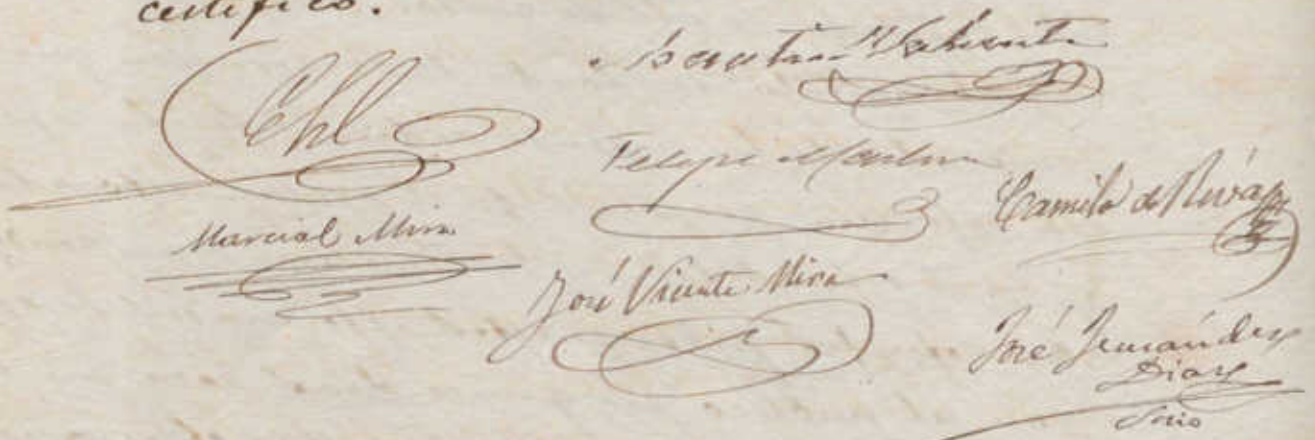 certifico.
Valiente
Felipe
Camilo de Rivas
Marcial Mira
José Vicente Mira
José Fernández
Diaz
Srio